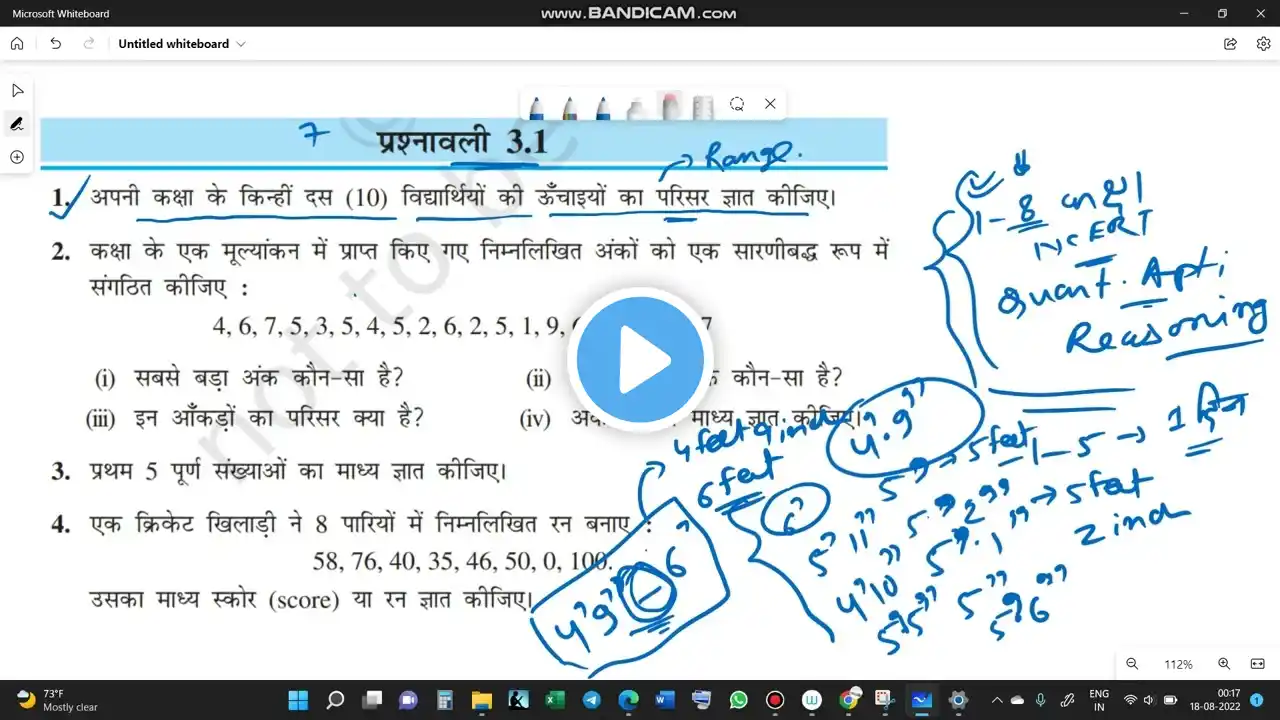 Microsoft Whiteboard
www.BANDICAM.com
Untitled whiteboard
7
प्रश्नावली 3.1
Range.
1. अपनी कक्षा के किन्हीं दस (10) विद्यार्थियों की ऊँचाइयों का परिसर ज्ञात कीजिए।
2. कक्षा के एक मूल्यांकन में प्राप्त किए गए निम्नलिखित अंकों को एक सारणीबद्ध रूप में
संगठित कीजिए :
4, 6, 7, 5, 3, 5, 4, 5, 2, 6, 2, 5, 1, 9, 7
(i) सबसे बड़ा अंक कौन-सा है?
(ii) कौन-सा है?
(iii) इन आँकड़ों का परिसर क्या है?
(iv) माध्य ज्ञात कीजिए।
3. प्रथम 5 पूर्ण संख्याओं का माध्य ज्ञात कीजिए।
4. एक क्रिकेट खिलाड़ी ने 8 पारियों में निम्नलिखित रन बनाए :
58, 76, 40, 35, 46, 50, 0, 100.
उसका माध्य स्कोर (score) या रन ज्ञात कीजिए।
not to be
1-8 कक्षा
NCERT
Quant. Apti
Reasoning
1-5 → 1 दिन
4'.9''
4 feet 9 inch
6 feet
5'' → 5 feet
6'
5' 11''
5'.2'' → 5 feet
2 inch
5'.1''
4'10''
5'5''
5''
5'6''
4'9'' - 6'
112%
73°F
Mostly clear
ENG
IN
00:17
18-08-2022